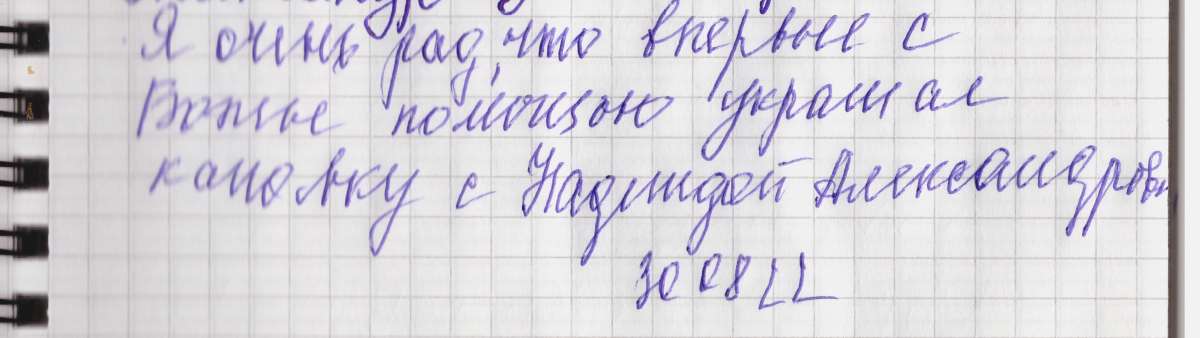 Я очень рад, что впервые с
Божье помощью украшал
канавку с Надеждой Александровн
30 08 22